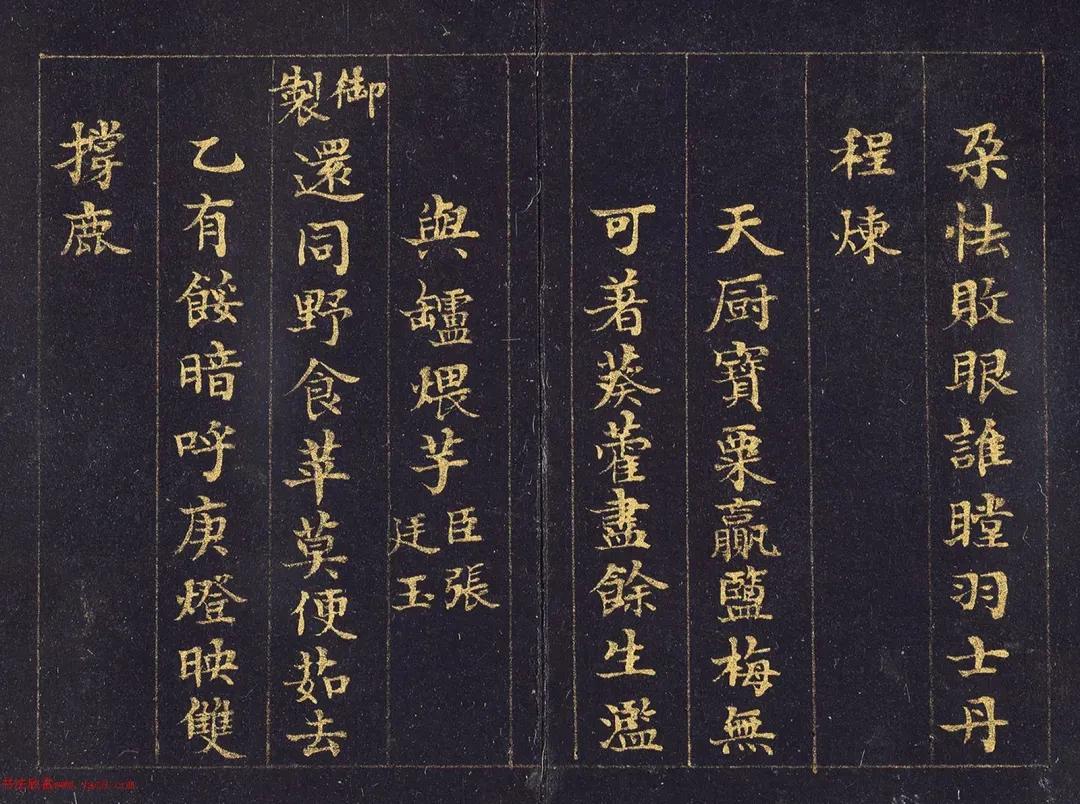 朶怯敗眼誰瞠羽士丹
程煉
天厨寶栗贏鹽梅無
可著葵藿盡餘生濫
與罏煨芋臣張廷玉
御製還同野食苹莫便茹去
乙有餒暗呼庚燈映雙
撐鹿